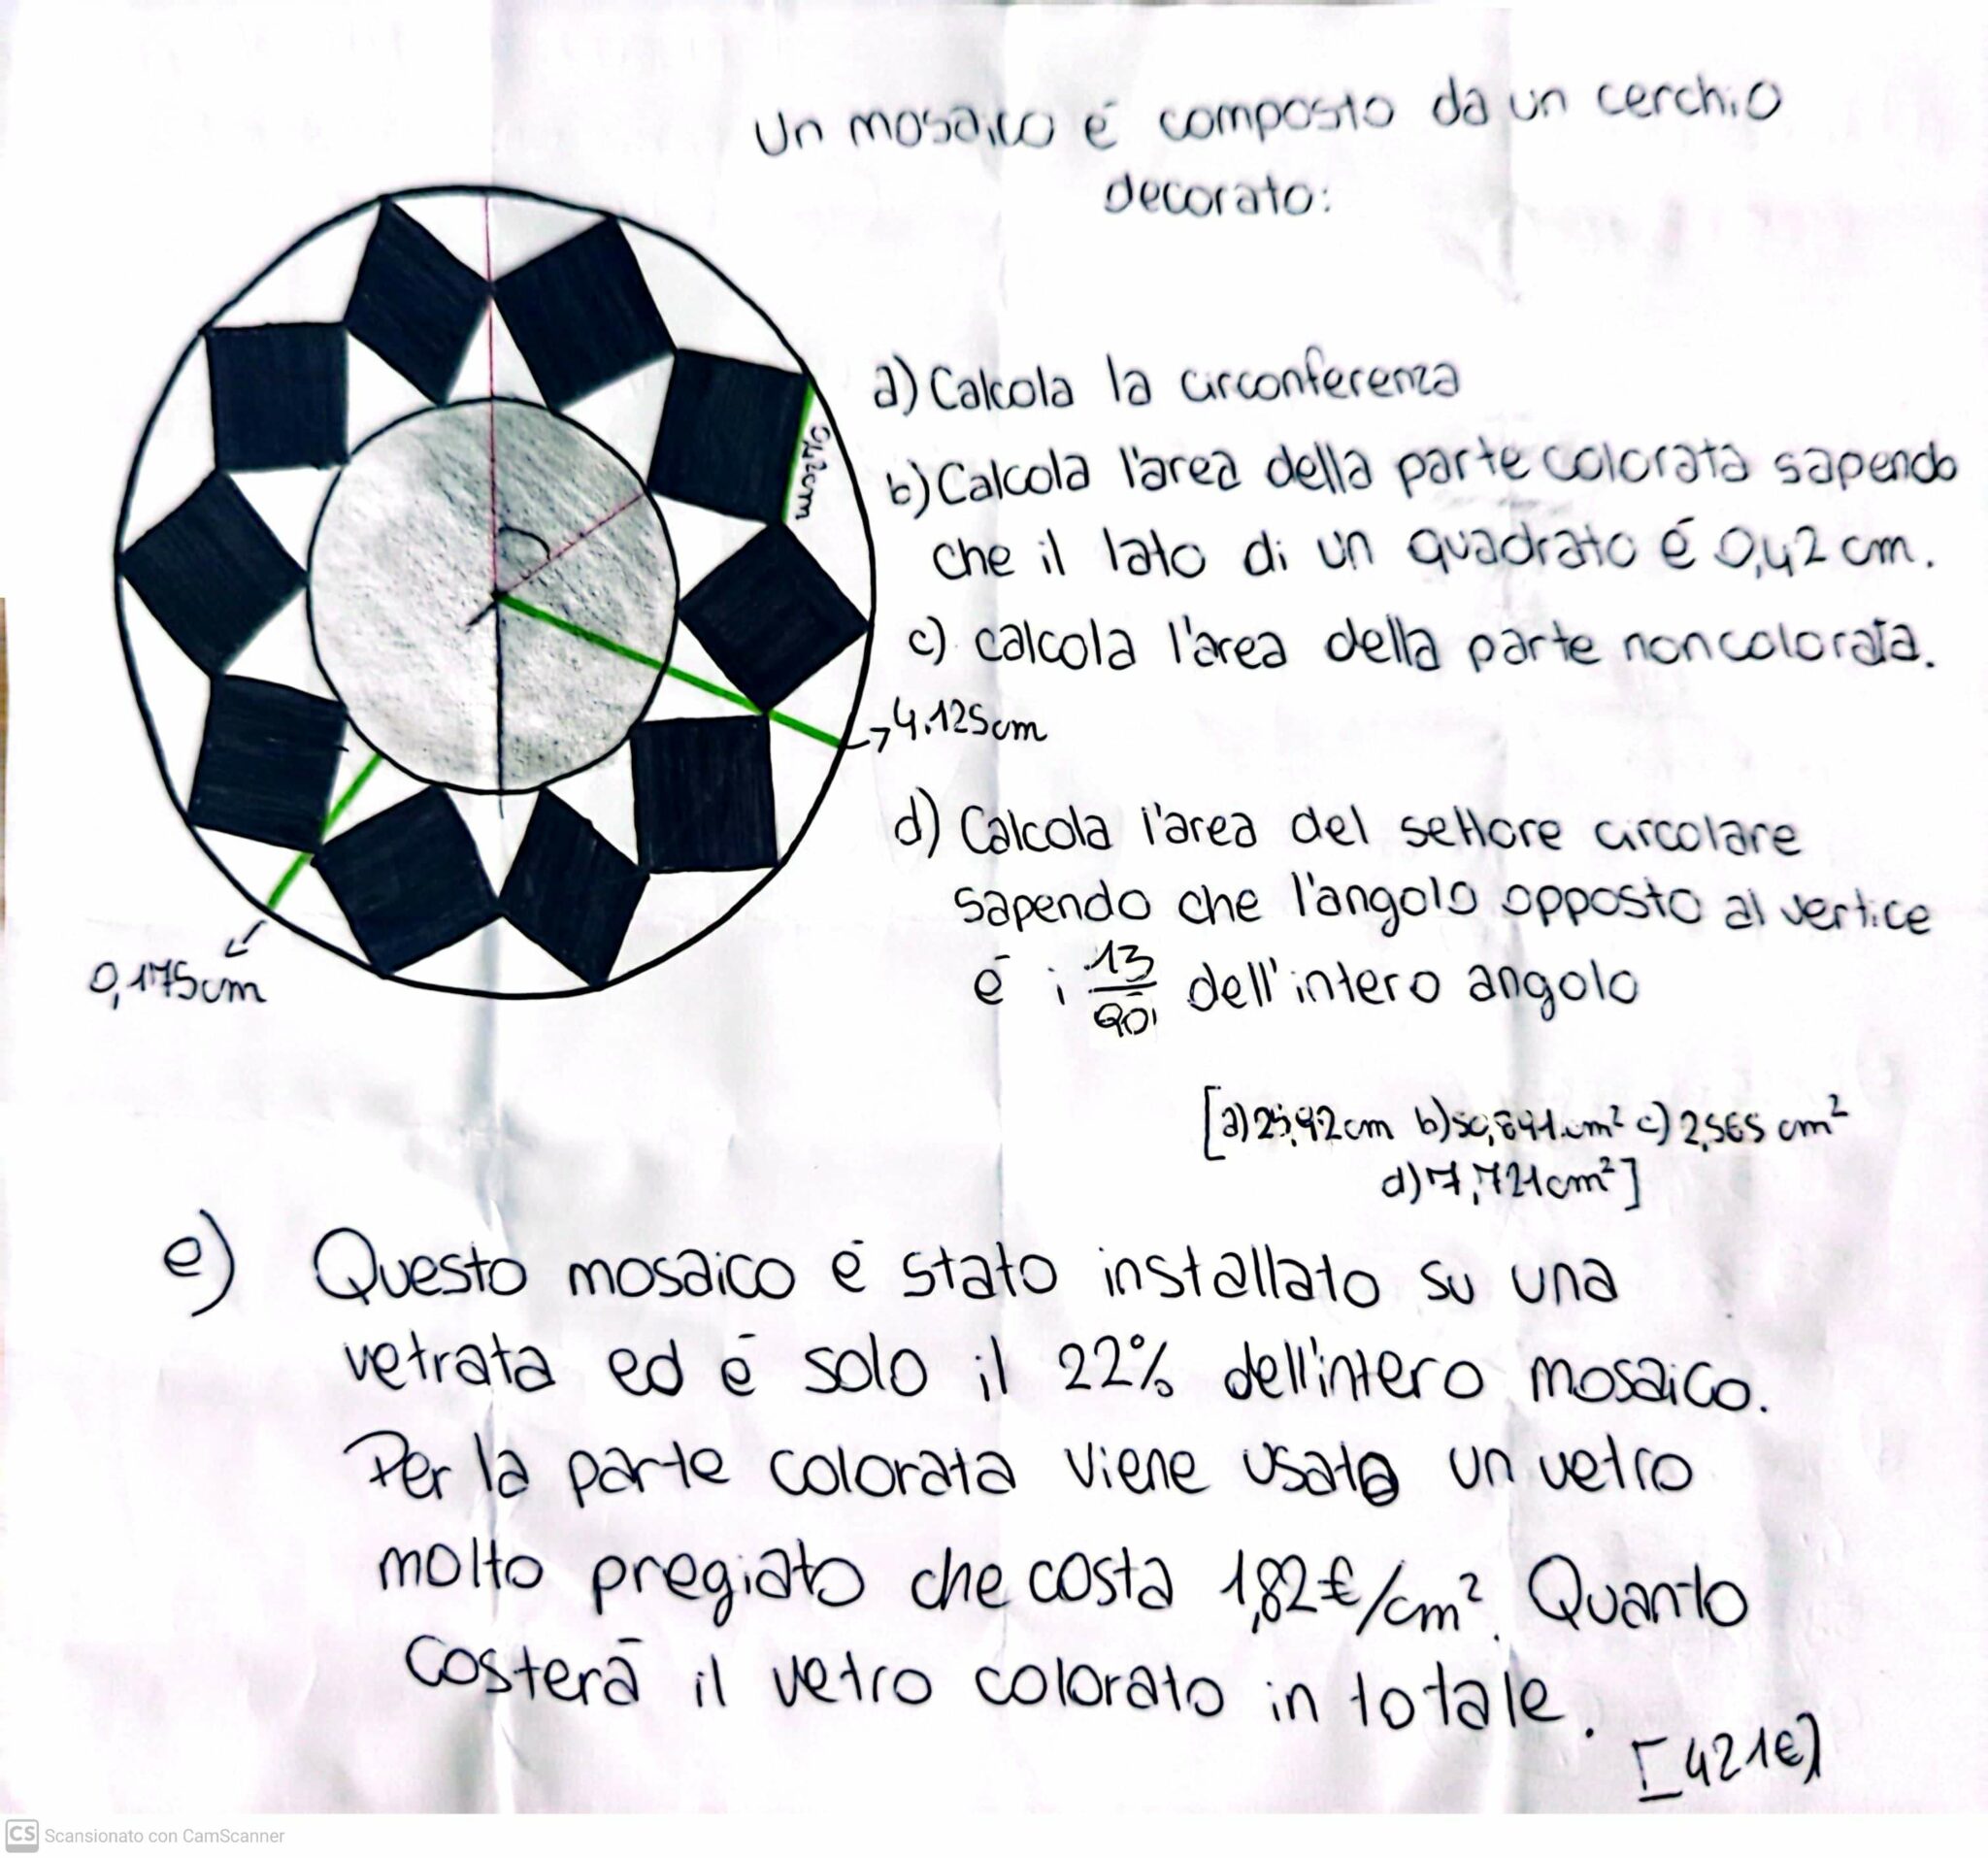 Un mosaico é composto da un cerchio
decorato:
a) Calcola la circonferenza
b) Calcola l'area della parte colorata sapendo
che il lato di un quadrato é 0,42 cm.
c) calcola l'area della parte non colorata.
0,42cm
→4.125cm
d) Calcola l'area del settore circolare
sapendo che l'angolo opposto al vertice
é i 13/90 dell'intero angolo
0,175cm
[a) 25,92cm b) cm² c) 2,565 cm²
d) 7,721cm²]
e) Questo mosaico é stato installato su una
vetrata ed é solo il 22% dell'intero mosaico.
Per la parte colorata viene usato un vetro
molto pregiato che costa 1,82€/cm². Quanto
Costerā il vetro colorato in totale.
[421€]
CS Scansionato con CamScanner